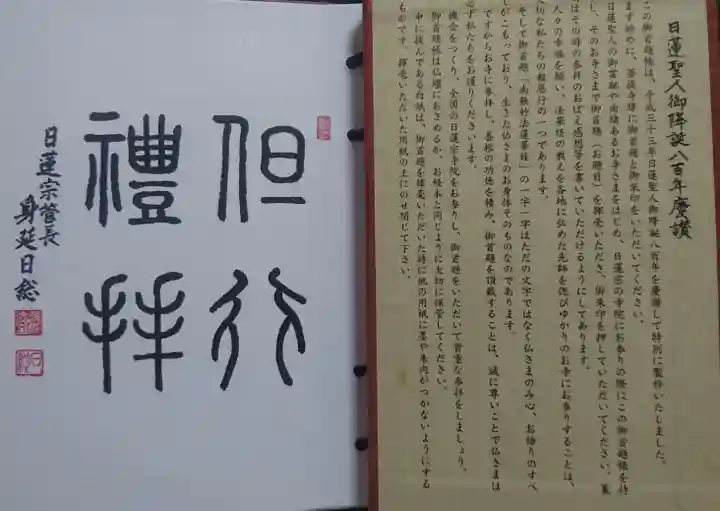 日蓮聖人御降誕八百年慶讃
この御首題帳は、平成三十三年日蓮聖人御降誕八百年を慶讃して特別に製作いたしました。
まず始めに、菩提寺様に御首題と御朱印をいただいてください。
日蓮聖人の御霊跡や由緒あるお寺さまをはじめ、日蓮宗の寺院にお参りの際にこの御首題帳を持
し、そのお寺さまで御首題（お題目）を揮毫いただき、御朱印を押していただいてください。裏
はその時の参拝のおぼえ感想等を書いていただけるようにしてあります。
人々の幸福を願い、法華経の教えを各地に弘めた先師を偲びゆかりのお寺にお参りすることは、
切な私たちの報恩行の一つであります。
そして御首題「南無妙法蓮華経」の一字一字はただの文字ではなく仏さまのみ心、お悟りのすべ
がこもっており、生きた仏さまのお身体そのものなのであります。
ですからお寺に参拝し、善根の功徳を積み、御首題を頂戴することは、誠に尊いことで仏さまは
必ず私たちをお護りくださいます。
機会をつくり、全国の日蓮宗寺院をお参りし、御首題をいただいて貴重な参拝をしましょう。
御首題帳は仏壇におさめるか、お経本と同じように大切に保管してください。
中に挟んである白紙は、御首題を揮毫いただいた時に他の用紙に墨や朱肉がつかないようにする
ものです。揮毫いただいた用紙の上にのせ閉じて下さい。
但行
禮拝
日蓮宗管長
身延日総